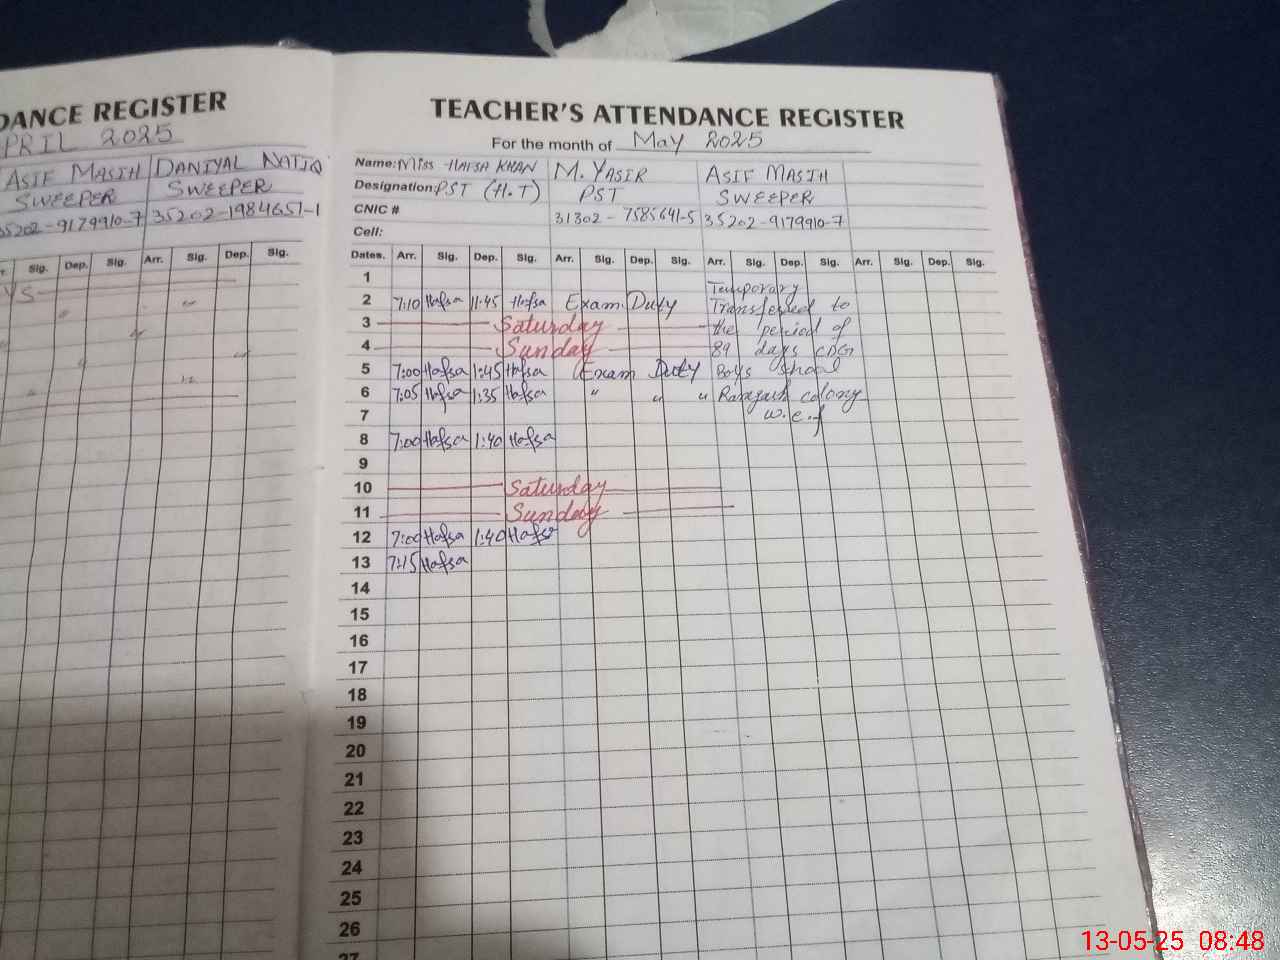 DANCE REGISTER
PRIL 2025
ASIF MASIH DANIYAL NATIQ
SWEEPER SWEEPER
35202-9179910-7 35202-1984651-1
Sig. Dep. Sig. Arr. Sig. Dep. Sig.
TEACHER'S ATTENDANCE REGISTER
For the month of May 2025
Name: Miss HAFSA KHAN M. YASIR ASIF MASIH
Designation: PST (H.T) PST SWEEPER
CNIC # 31302-7585641-5 35202-9179910-7
Cell:
Dates. Arr. Sig. Dep. Sig. Arr. Sig. Dep. Sig. Arr. Sig. Dep. Sig. Arr. Sig. Dep. Sig.
1 Temporary
2 7:10 Hafsa 11:45 Hafsa Exam Duty Transferred to
3 Saturday the period of
4 Sunday 89 days CDG
5 7:00 Hafsa 1:45 Hafsa Exam Duty Boys School
6 7:05 Hafsa 1:35 Hafsa " " " colony
7 w.e.f
8 7:00 Hafsa 1:40 Hafsa
9
10 Saturday
11 Sunday
12 7:00 Hafsa 1:40 Hafsa
13 7:15 Hafsa
14
15
16
17
18
19
20
21
22
23
24
25
26
27
13-05-25 08:48